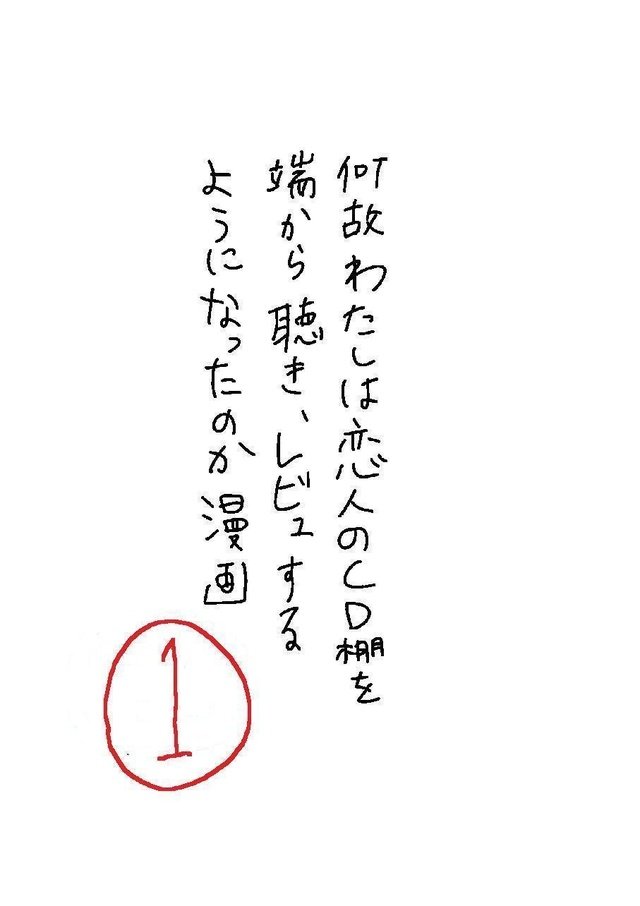 何故わたしは恋人のCD棚を
端から聴き、レビュする
ようになったのか漫画
1